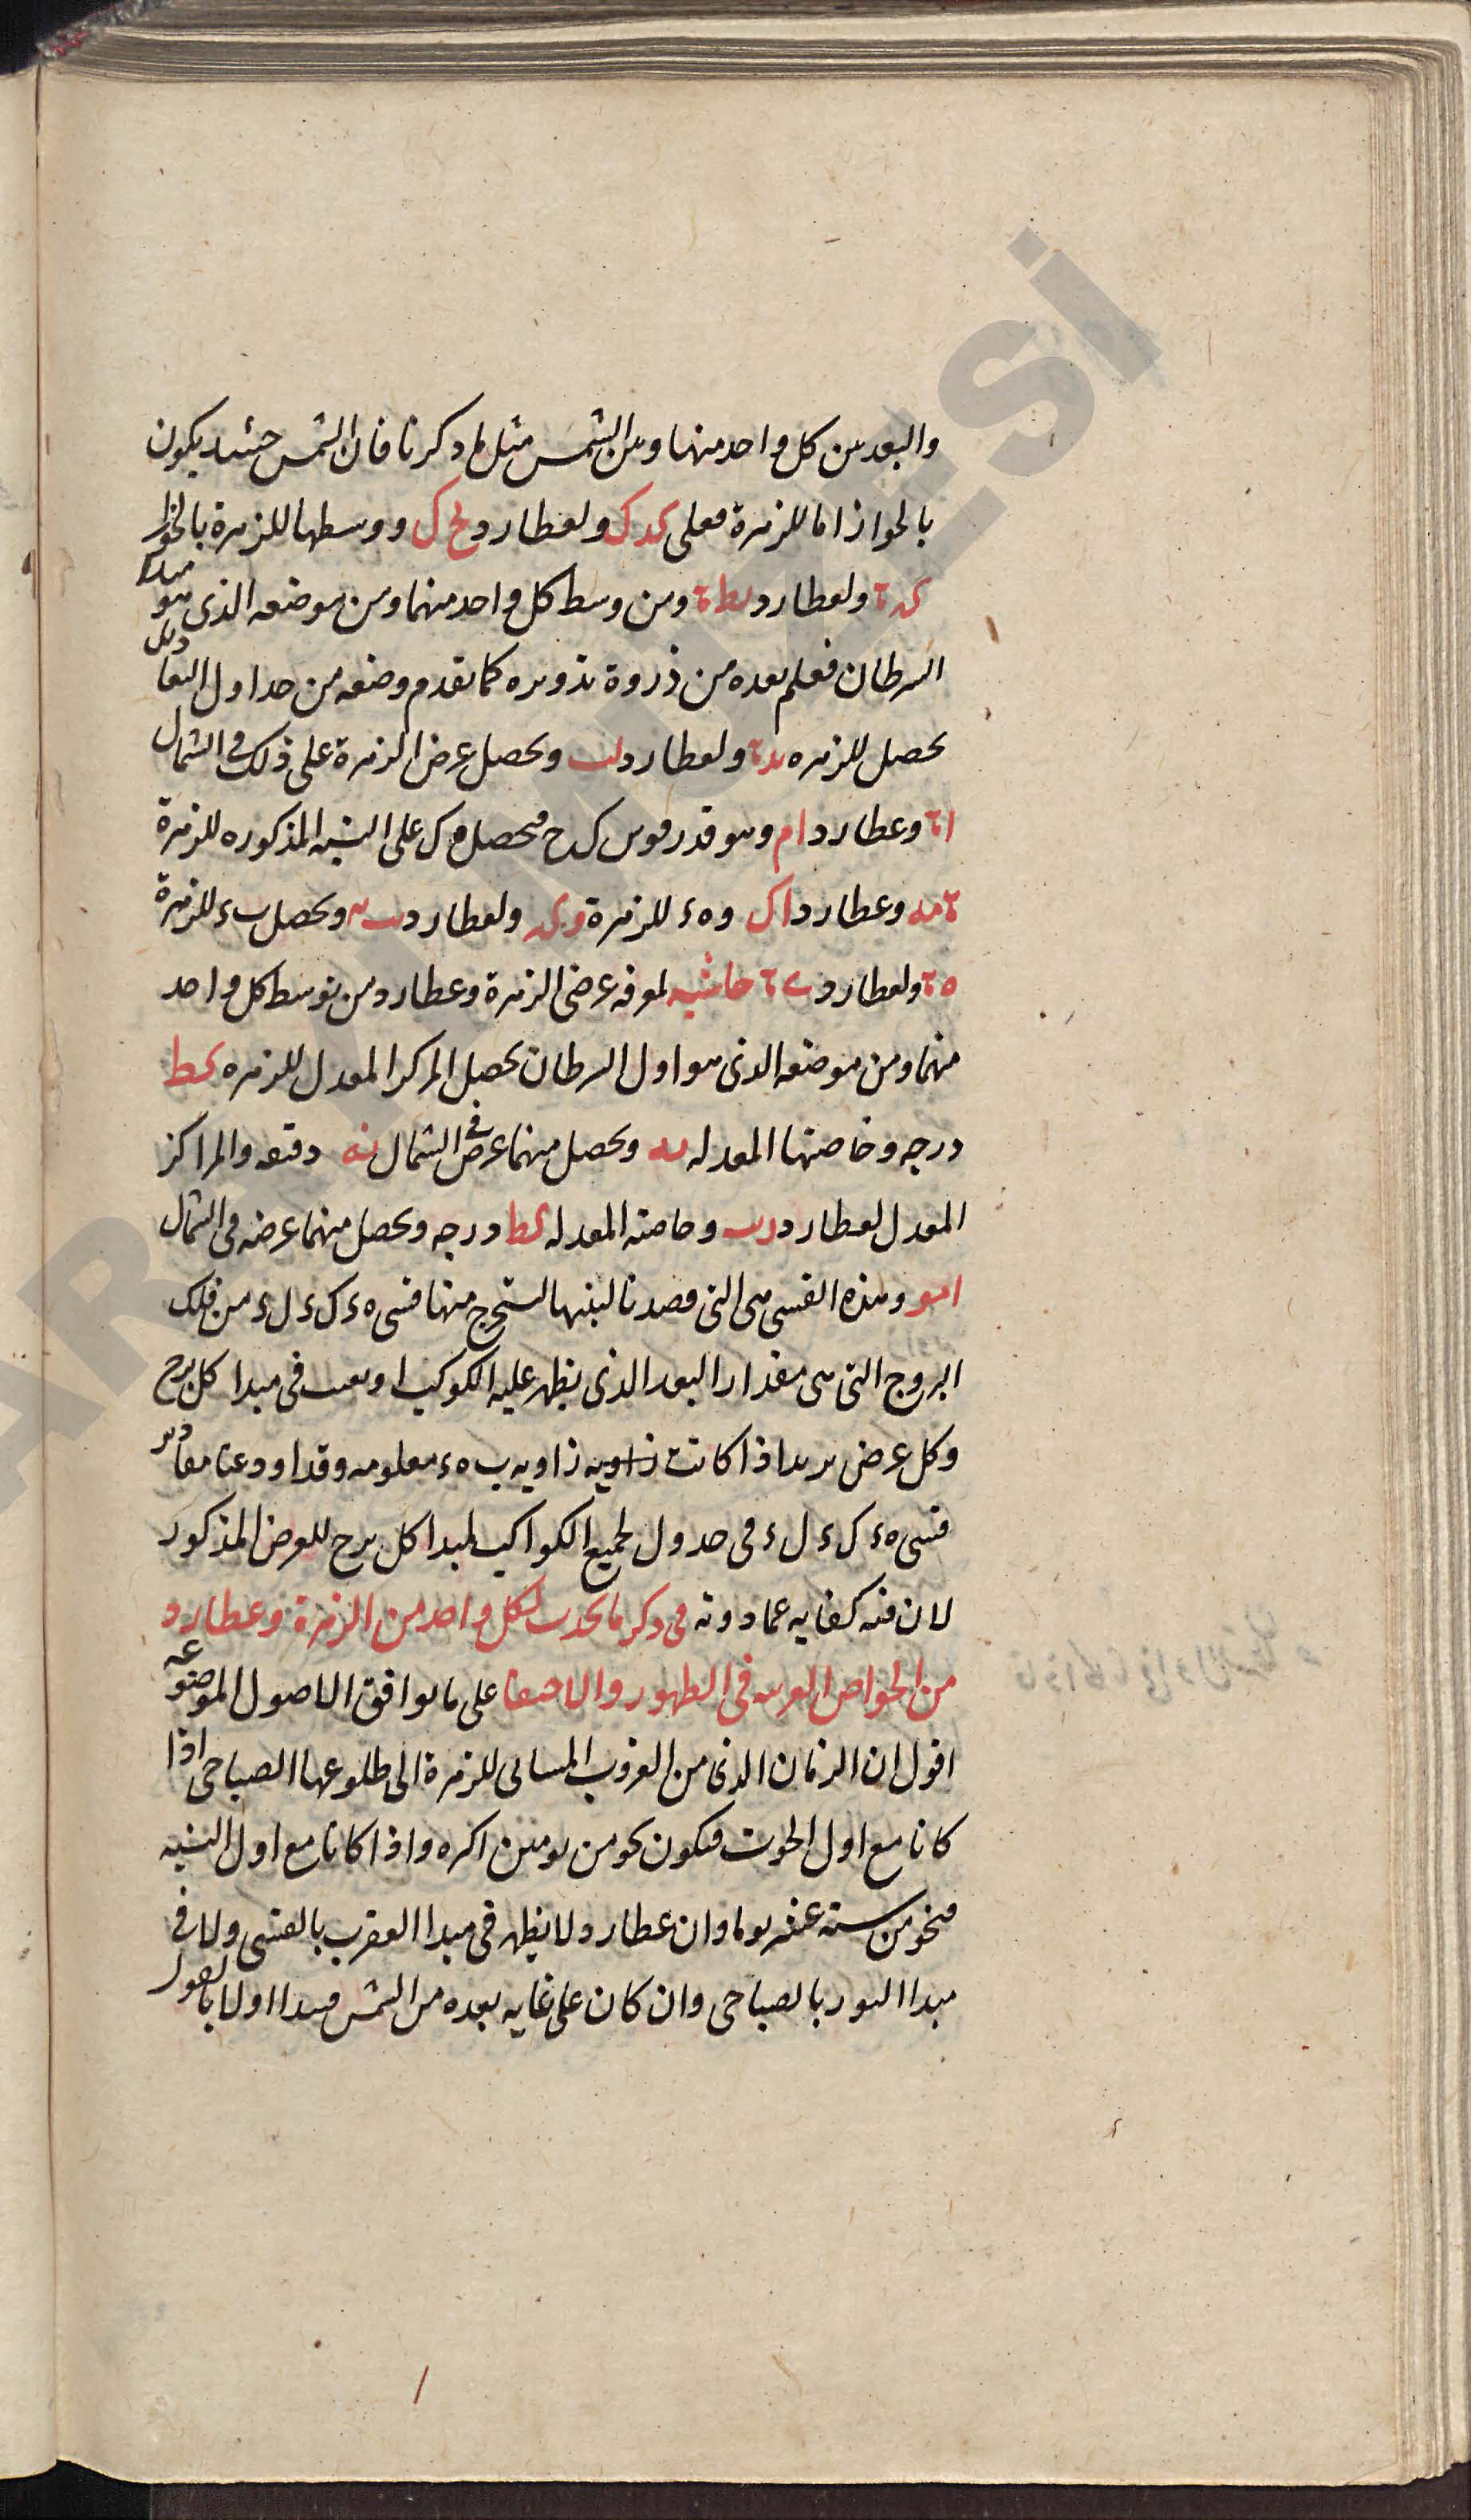 والبعد بين كل واحد منهما وبين الشمس مثل ما ذكرنا فان الشمس حينئذ يكون
بالجوزا اما للزهرة فعلى كد ك ولعطارد لح ك ووسطها للزهرة بالجوزا
ولعطارد ومن وسط كل واحد منهما ومن موضعه الذى هو مبدا
السرطان فعلم بعده من ذروة تدويره كما تقدم وضعه من جداول التعاديل
يحصل للزهره ولعطارد ويحصل عرض الزهرة على ذلك فى الشمال
وعطارد ام وهو قدر قوس ك ح فيحصل ه ك على النسبه المذكوره للزهرة
وعطارد ا ك و ه ء للزهرة ولعطارد ويحصل ب ء للزهرة
ولعطارد حاشيه لمعرفه عرضى الزهرة وعطارد من توسط كل واحد
منهما ومن موضعه الذى هو اول السرطان يحصل المركز المعدل للزهره
درجه وخاصتها المعدله ويحصل منهما عرض فى الشمال نه دقيقه والمراكز
المعدل لعطارد وخاصته المعدله درجه ويحصل منهما عرضه فى الشمال
ا مو وهذه القسى هى التى قصدنا لبنيها لستخرج منها قسى ه ء ك ء ل ء من فلك
البروج التى هى مقدار البعد الذى يظهر عليه الكوكب او يغيب فى مبدا كل برج
وكل عرض يريد اذا كانت زاويه زاويه ب ه ء معلومه وقد اودعنا مقادير
قسى ه ء ك ء ل ء فى جدول لجميع الكواكب لمبدا كل برج للعرض المذكور
لان فيه كفايه عما دونه فى ذكر ما يحدث لكل واحد من الزهرة وعطارد
من الخواص الغريبه فى الظهور والاختفا على ما يوافق الاصول الموضوعه
اقول ان الزمان الذى من الغروب المسائى للزهرة الى طلوعها الصباحى اذا
كانا مع اول الحوت فيكون نحو من يومين اكره واذا كانا مع اول السنبه
فنحو من ستة عشر يوما وان عطارد لا يظهر فى مبدا العقرب بالعشى ولا فى
مبدا الثور بالصباحى وان كان على غايه بعده من الشمس فيبدا اولا بالقول